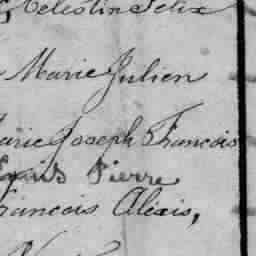 Célestin Félix
Marie Julien
Marie Joseph François
Pierre
François Alexis,